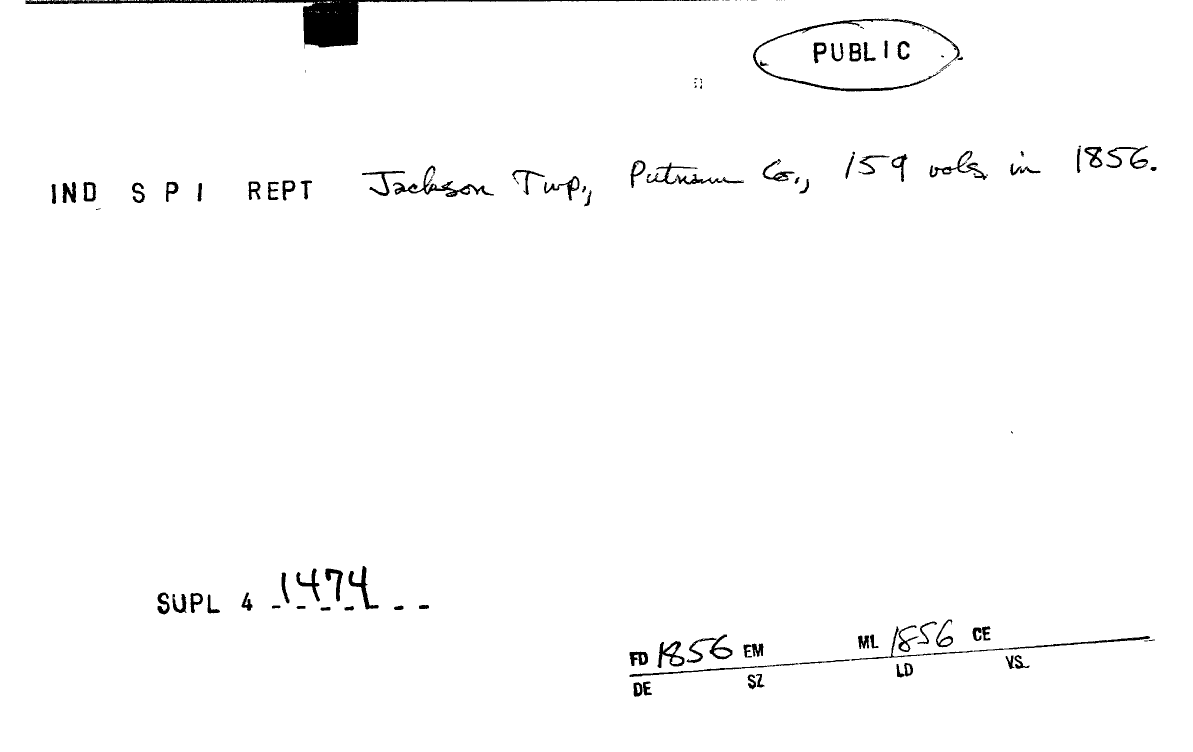 PUBLIC
IND S P I REPT Jackson Twp., Putnam Co., 159 vols. in 1856.
SUPL 4 1474
FD 1856 EM ML 1856 CE
DE SZ LD VS